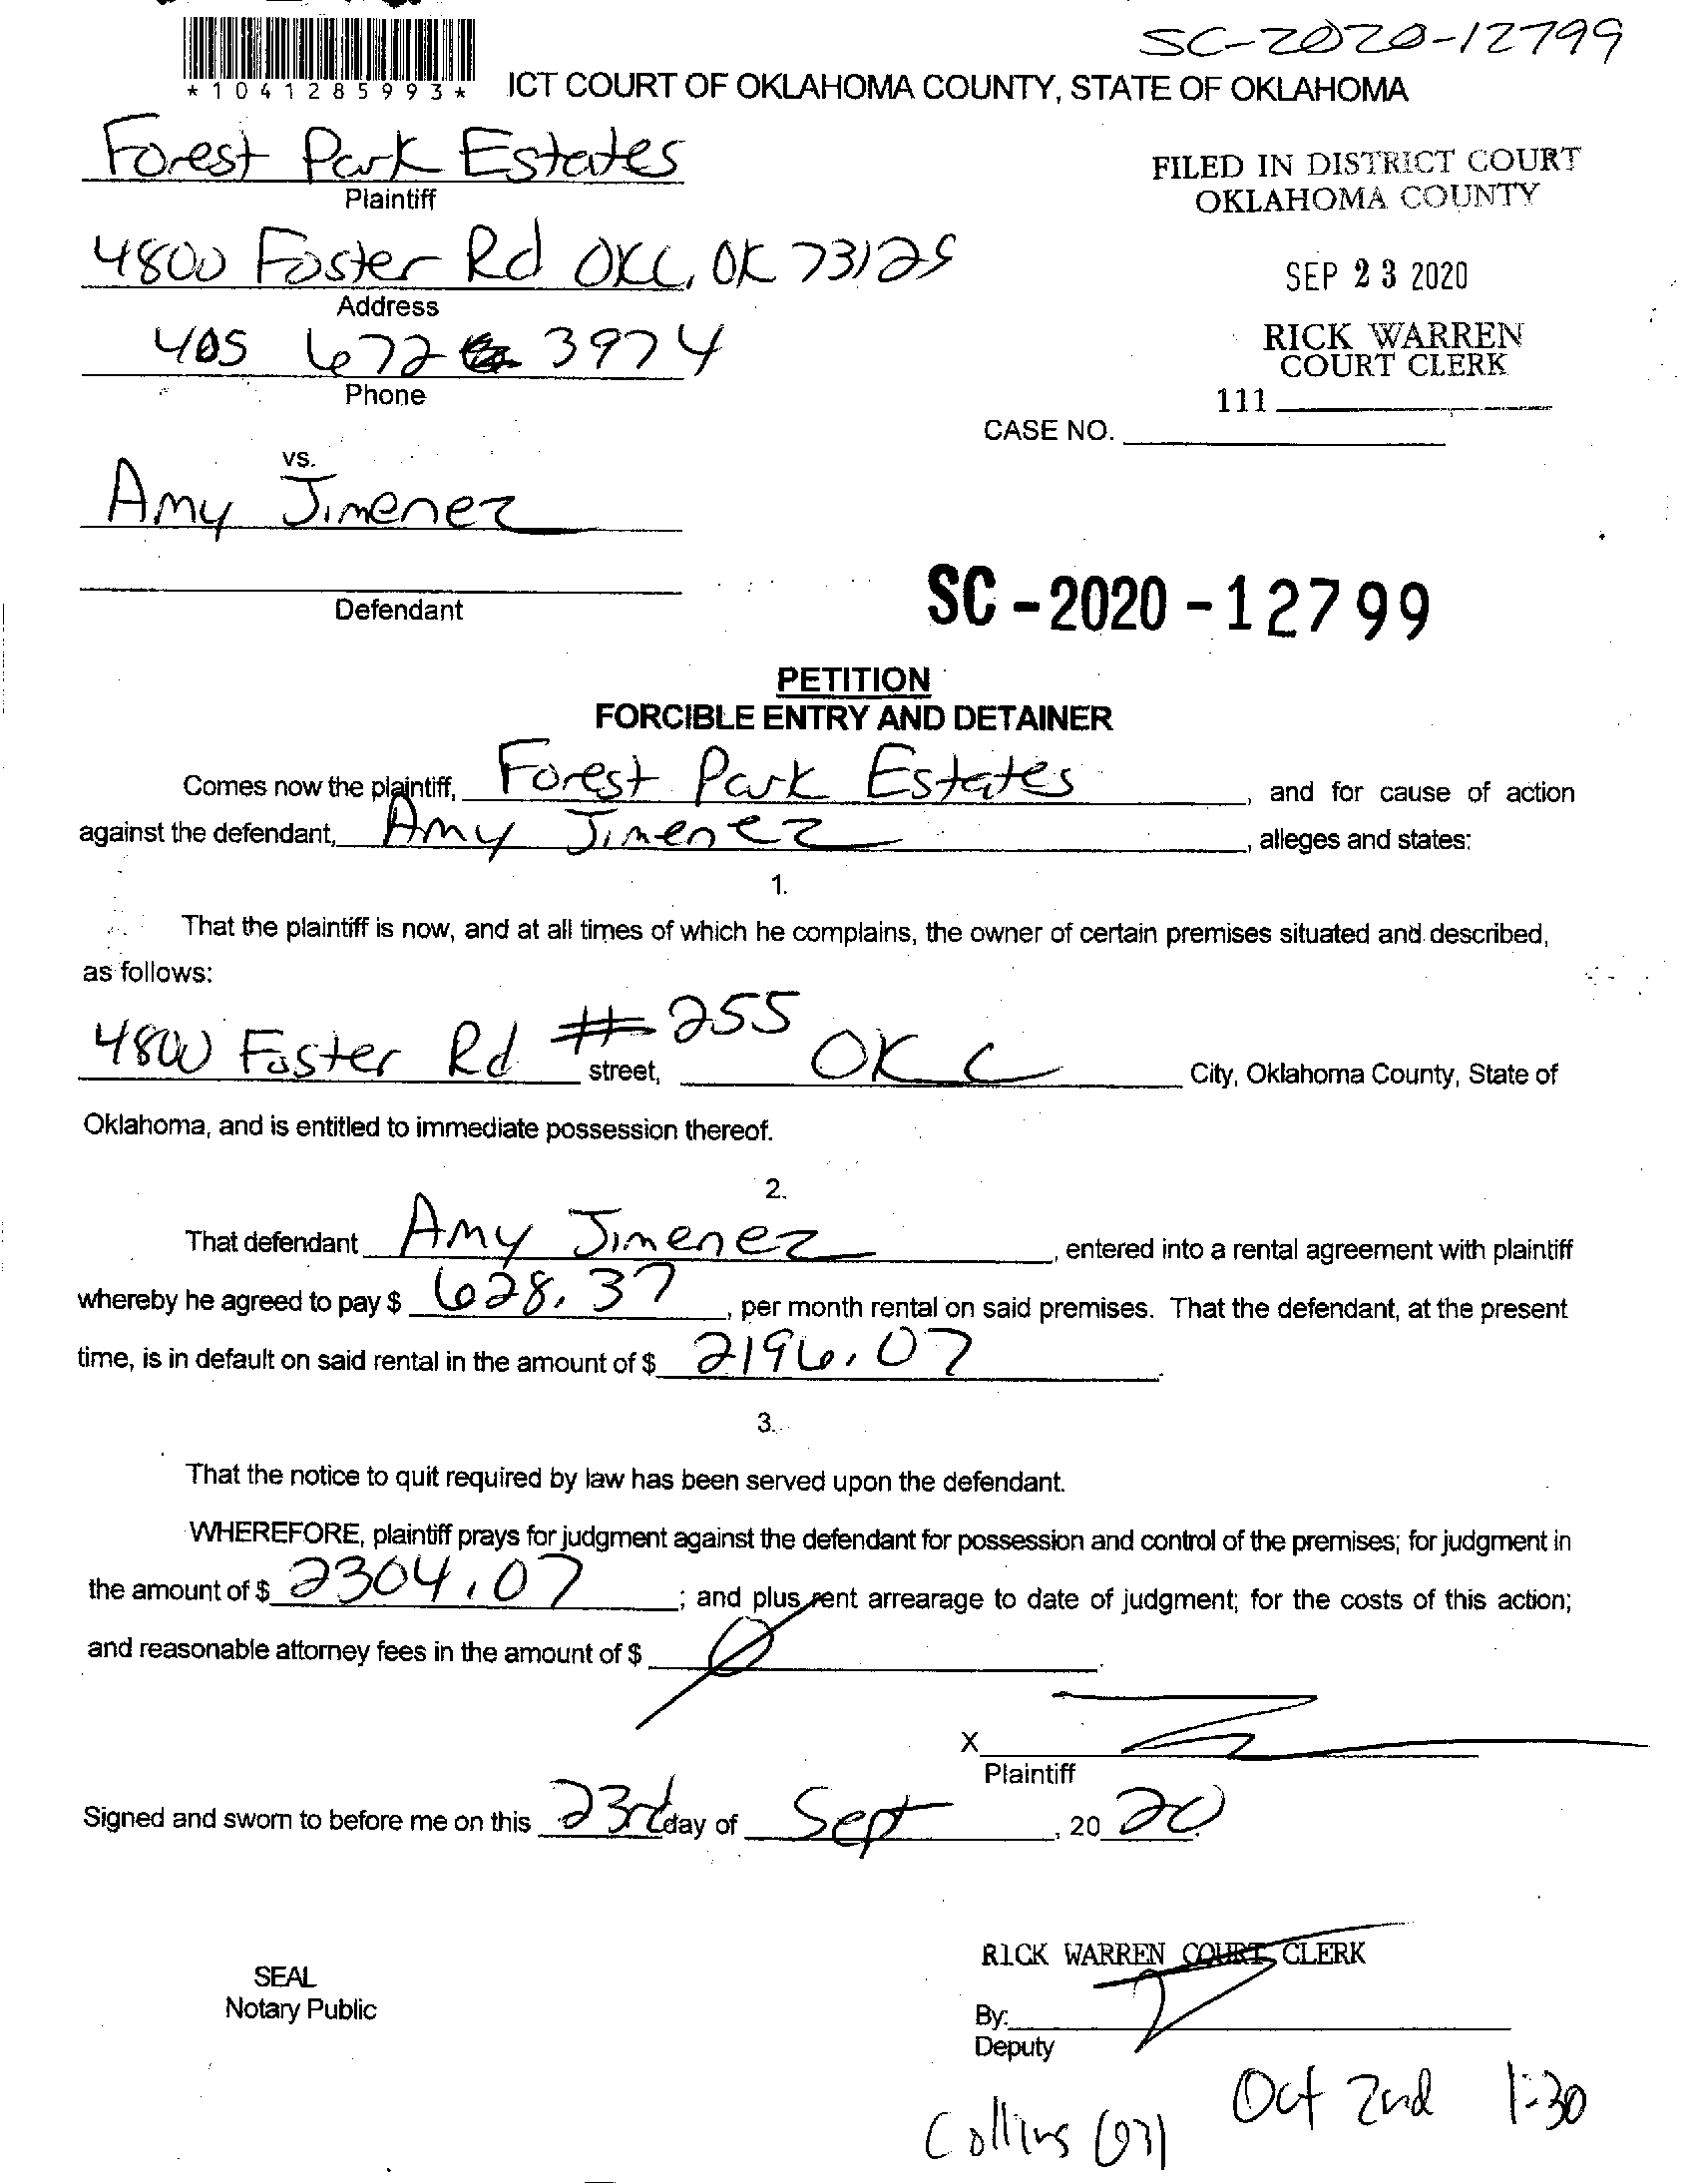 SC-2020-12799
*1041285993*
ICT COURT OF OKLAHOMA COUNTY, STATE OF OKLAHOMA
Forest Park Estates
Plaintiff
FILED IN DISTRICT COURT
OKLAHOMA COUNTY
4800 Foster Rd OKC, OK 73129
Address
SEP 23 2020
405 672 3974
Phone
RICK WARREN
COURT CLERK
111
CASE NO.
vs.
Amy Jimenez
Defendant
SC-2020-12799
PETITION
FORCIBLE ENTRY AND DETAINER
Comes now the plaintiff, Forest Park Estates, and for cause of action
against the defendant, Amy Jimenez, alleges and states:
1.
That the plaintiff is now, and at all times of which he complains, the owner of certain premises situated and described,
as follows:
4800 Foster Rd #255 street, OKC City, Oklahoma County, State of
Oklahoma, and is entitled to immediate possession thereof.
2.
That defendant Amy Jimenez, entered into a rental agreement with plaintiff
whereby he agreed to pay $ 628.37, per month rental on said premises. That the defendant, at the present
time, is in default on said rental in the amount of $ 2196.07.
3.
That the notice to quit required by law has been served upon the defendant.
WHEREFORE, plaintiff prays for judgment against the defendant for possession and control of the premises; for judgment in
the amount of $ 2304.07; and plus rent arrearage to date of judgment; for the costs of this action;
and reasonable attorney fees in the amount of $ 0.
X
Plaintiff
Signed and sworn to before me on this 23rd day of Sept, 20 20.
RICK WARREN COURT CLERK
SEAL
Notary Public
By:
Deputy
Oct 2nd 1:30
Collins